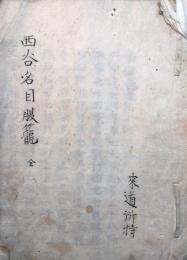 西谷名目眼籠 全
来道所持